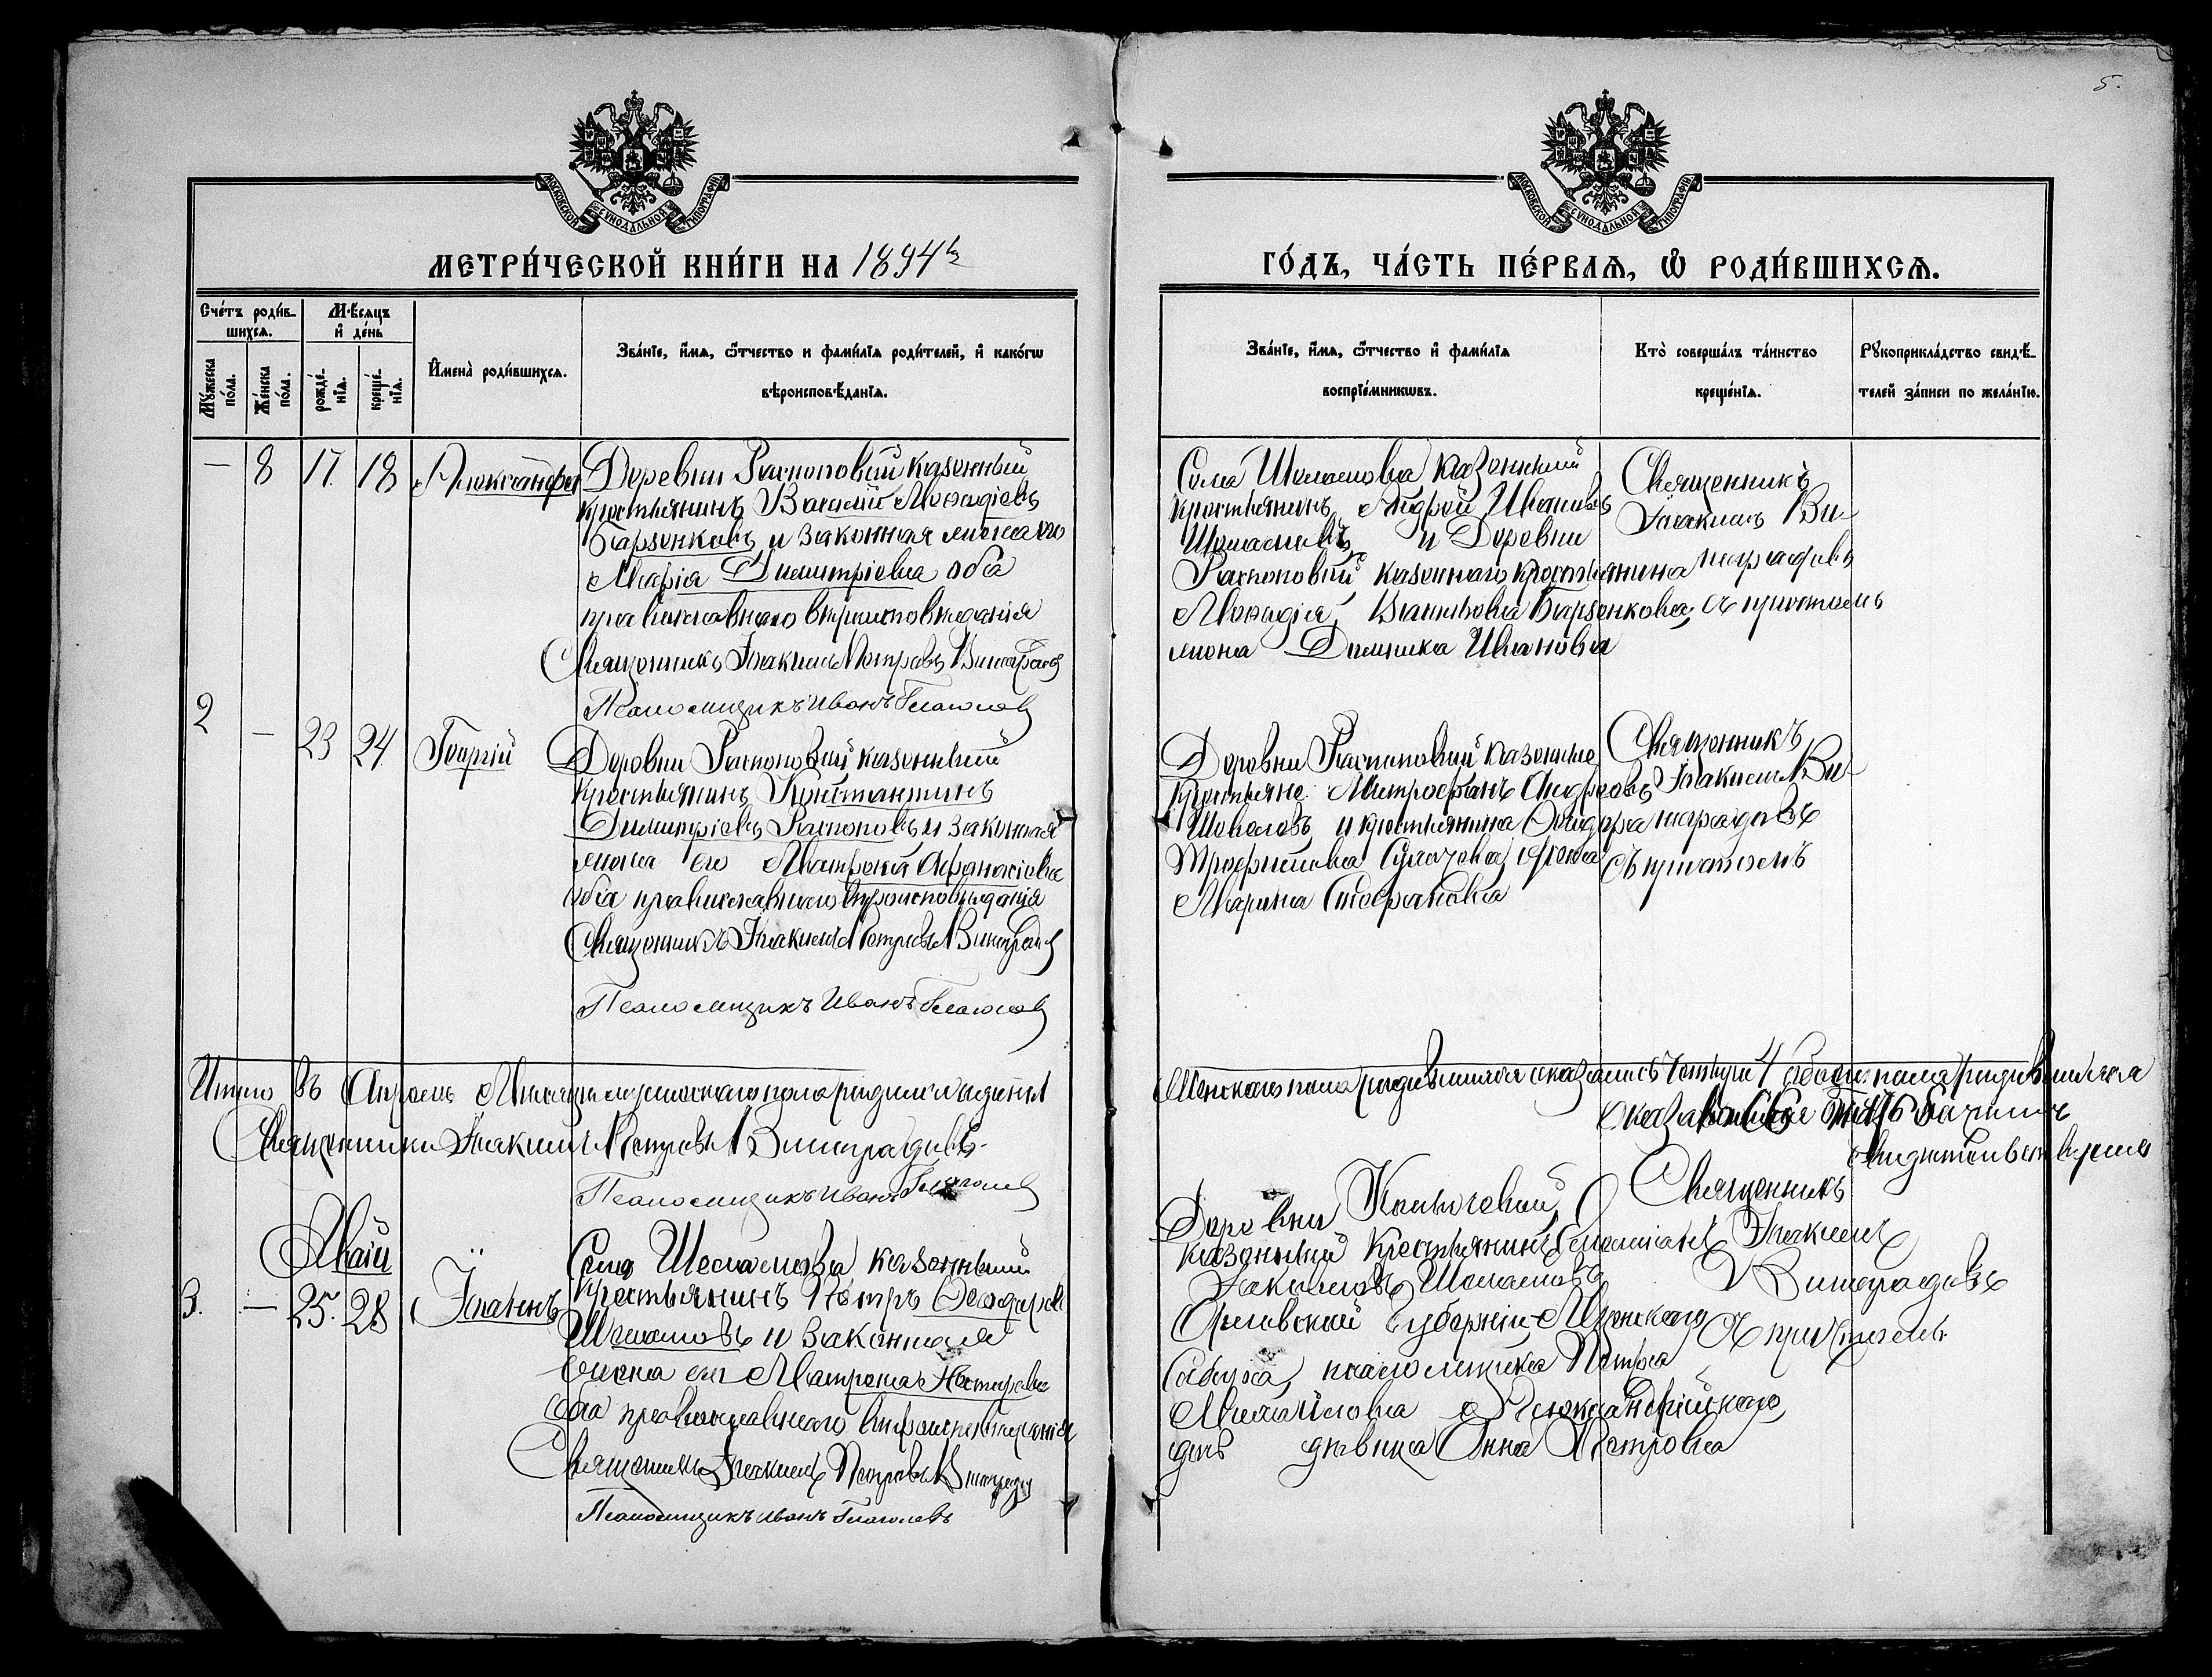 5.
МОСКОВСКОЙ СѴНОДАЛЬНОЙ ТИПОГРАФІИ
МОСКОВСКОЙ СѴНОДАЛЬНОЙ ТИПОГРАФІИ
МЕТРИ́ЧЕСКОЙ КНИ́ГИ НА 1894й
ГО́ДЪ, ЧА́СТЬ ПЕ́РВАѦ, Ѽ РОДИ́ВШИХСѦ.
Сче́тъ роди́в-
шихсѧ.
Мѣ́сѧцъ
и҆ де́нь
Мꙋ́жеска
по́ла.
Же́нска
по́ла.
рожде́-
нїѧ.
креще́-
нїѧ.
И҆мена̀ роди́вшихсѧ.
Зва́нїе, и҆́мѧ, ѻ҆́тчество и фами́лїѧ роди́телей, и҆ како́гѡ
вѣроисповѣ́данїѧ.
Зва́нїе, и҆́мѧ, ѻ҆́тчество и҆ фами́лїѧ
воспрїе́мникѡвъ.
Кто̀ соверша́лъ та́инство
креще́нїѧ.
Рꙋкоприкла́дство свидѣ́-
телей за́писи по жела́нїю.
— 8 17. 18 Александра
Деревни Распоповой казенный
крестьянинъ Василий
Барзенковъ и законная жена его
Марія Димитріевна оба
православнаго вѣроисповѣданія
Священникъ Іоакимъ Петровъ Виноградовъ
Псаломщикъ Иванъ Глаголевъ
Села Шеламова казенный
крестьянинъ Андрей Ивановъ
Шеламовъ и Деревни
Распоповой казеннаго крестьянина
Барзенкова,
жена Домника Иванова
Священникъ
Іоакимъ Ви-
ноградовъ
съ причтомъ
2 — 23 24 Георгій
Деревни Распоповой казенный
крестьянинъ Константинъ
Димитріевъ Распоповъ и законная
жена его Матрона Афанасіева
оба православнаго вѣроисповѣданія
Священникъ Іоакимъ Петровъ Виноградовъ
Псаломщикъ Иванъ Глаголевъ
Деревни Распоповой казенные
крестьяне Митрофанъ Андреевъ
и крестьянина Ѳеодора
Трофимова жена
Марина Стефанова
Священникъ
Іоакимъ Ви-
ноградовъ
съ причтомъ
Итого въ Апрелѣ Мѣсяцѣ мужескаго пола родился единъ 1
Женскаго пола родившихся оказалось четыре 4 обоего пола родившихся
оказалось
свидѣтельствуемъ
Священникъ Іоакимъ Петровъ Виноградовъ
Псаломщикъ Иванъ Глаголевъ
Май
3. — 25. 28 Іоаннъ
Села Шеламова казенный
крестьянинъ Петръ Ѳеодоровъ
Шеламовъ и законная
жена его Матрона
оба православнаго вѣроисповѣданія
Священникъ Іоакимъ Петровъ Виноградовъ
Псаломщикъ Иванъ Глаголевъ
Деревни
казенный крестьянинъ
Іакимовъ Шеламовъ
Орловской губерніи Мценскаго
псаломщика Петра
Михайлова Александрійскаго
дочь дѣвица Анна Петровна
Священникъ
Іоакимъ
Виноградовъ
Съ причтомъ